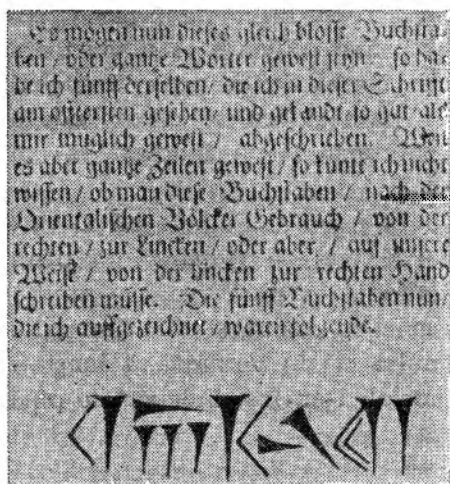 Es mögen nun dieses gleich blosse Buchsta-
ben / oder gantze Wörter gewest seyn / so hab-
be ich fünff derselben / die ich in dieser Schrifft
am öfftersten gesehen / und gekandt / so gut als
mir müglich gewest / abgeschrieben. Weil
es aber gantze Zeilen gewest / so kunte ich nicht
wissen / ob man diese Buchstaben / nach der
Orientalischen Völcker Gebrauch / von der
rechten / zur Lincken / oder aber / auf unsere
Weise / von der lincken zur rechten Hand
schreiben müsse. Die fünff Buchstaben nun /
die ich auffgezeichnet / waren folgende.